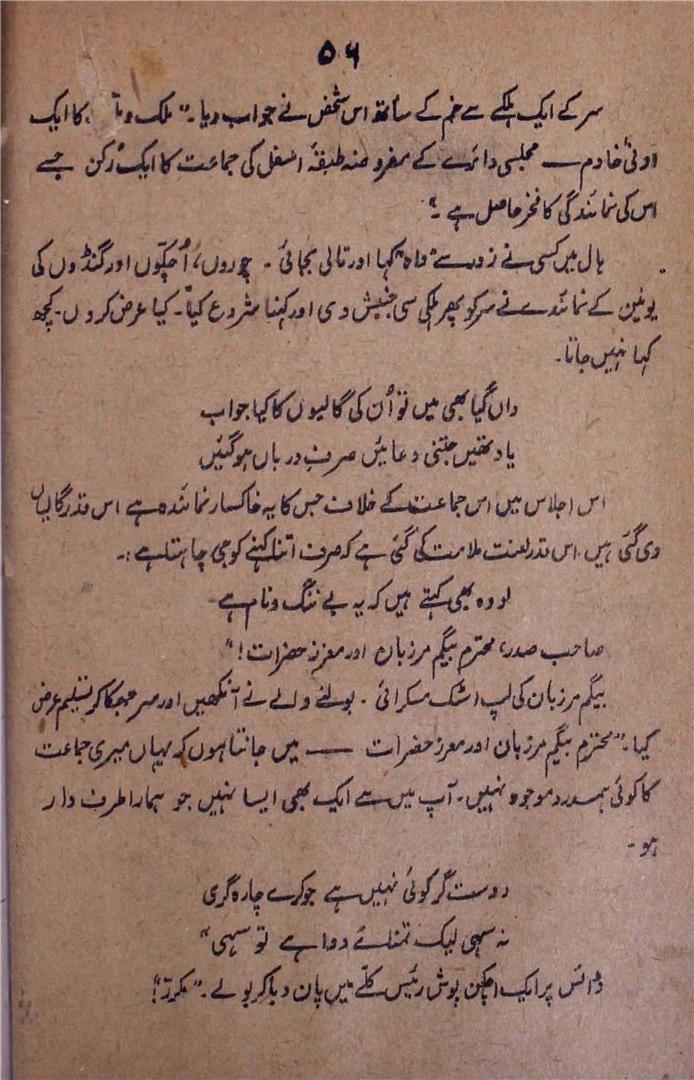 ۵۶
سر کے ایک ہلکے سے خم کے ساتھ اس شخص نے جواب دیا۔ "ملک و کا ایک
ادنیٰ خادم — مجلسی دائرے کے مفروضہ طبقۂ اسفل کی جماعت کا ایک رُکن جسے
اس کی نمائندگی کا فخر حاصل ہے۔"
ہال میں کسی نے زور سے "واہ" کہا اور تالی بجائی۔ چوروں، اُچکّوں اور گنڈوں کی
یونین کے نمائندے نے سر کو پھر ہلکی سی جنبش دی اور کہنا شروع کیا۔ کیا عرض کروں۔ کچھ
کہا نہیں جاتا۔
واں گیا بھی میں تو اُن کی گالیوں کا کیا جواب
یاد تھیں جتنی دعائیں صرفِ درباں ہو گئیں
اس اجلاس میں اس جماعت کے خلاف جس کا یہ خاکسار نمائندہ ہے اس قدر گالیاں
دی گئی ہیں۔ اس قدر لعنت ملامت کی گئی ہے کہ صرف اتنا کہنے کو جی چاہتا ہے :۔
لو وہ بھی کہتے ہیں کہ یہ بے ننگ و نام ہے
صاحب صدر، محترم بیگم مرزبان اور معزز حضرات!"
بیگم مرزبان کی لپ اسٹک مسکرائی۔ بولنے والے نے آنکھیں اور سر جھکا کر تسلیم عرض
کیا۔ "محترم بیگم مرزبان اور معزز حضرات — میں جانتا ہوں کہ یہاں میری جماعت
کا کوئی ہمدرد موجود نہیں۔ آپ میں سے ایک بھی ایسا نہیں جو ہمارا طرف دار
ہو۔
دوست گر کوئی نہیں ہے جو کرے چارہ گری
نہ سہی لیک تمنائے دوا ہے تو سہی"
ڈائس پر ایک اچکن پوش رئیس کلّے میں پان دبا کر بولے۔ "مکرّر!"